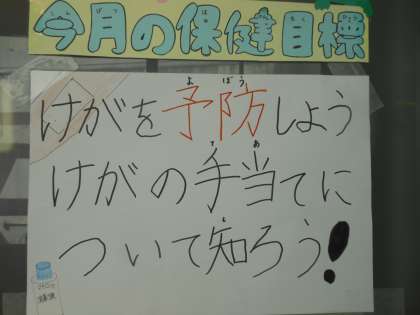 今月の保健目標
けがを予防しよう
けがの手当てに
ついて知ろう!